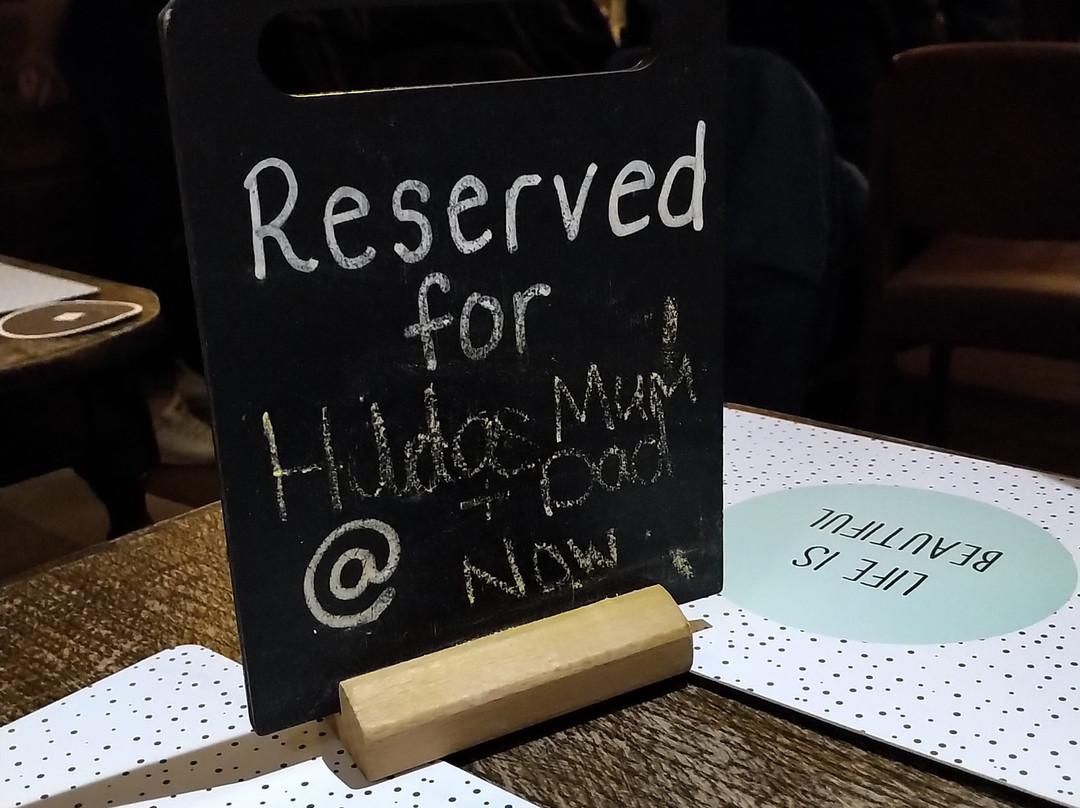 Reserved
for
Hildas Mum
+ Dad
@ Now
LIFE IS
BEAUTIFUL